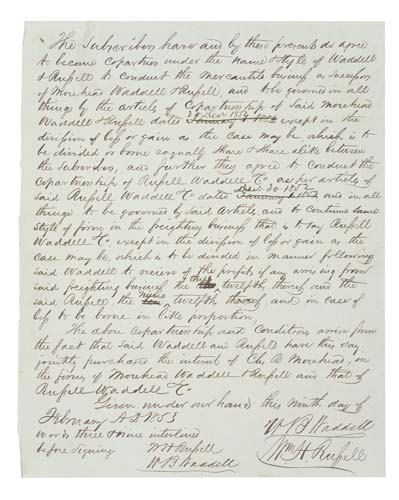 The Subscribers have and by these presents do agree
to become copartners under the name & style of Waddell
& Russell to conduct the Mercantile business as successors
of Morehead Waddell & Russell, and to be governed in all
things by the article of Copartnership of said Morehead
30 Decr 1852
Waddell & Russell dated January 1 1853 except in the
division of loss or gain as the case may be which is to
be divided or borne equally share & share alike between
the Subscribers, and further they agree to conduct the
copartnership of Russell Waddell & Co as per articles of
Decr 30 1852
said Russell Waddell & Co dated January 1 1853 and in all
things to be governed by said Articles and to continue same
style of firm in the freighting business that is to say Russell
Waddell & Co. except in the division of loss or gain as the
case may be, which is to be divided in manner following
said Waddell to receive of the profits if any arising from
three
said freighting business the twelfth thereof and the
nine
said Russell the twelfth thereof, and in case of
loss to be borne in like proportion.
The above copartnership and Condition arises from
the fact that said Waddell and Russell have this day
jointly purchased the interest of Chs B Morehead in
the firms of Morehead Waddell & Russell and that of
Russell Waddell & Co
Given under our hands this Ninth day of
February A.D. 1853
words three & nine interlined
before signing
W B Waddell
Wm H Russell
W H Russell
W B Waddell